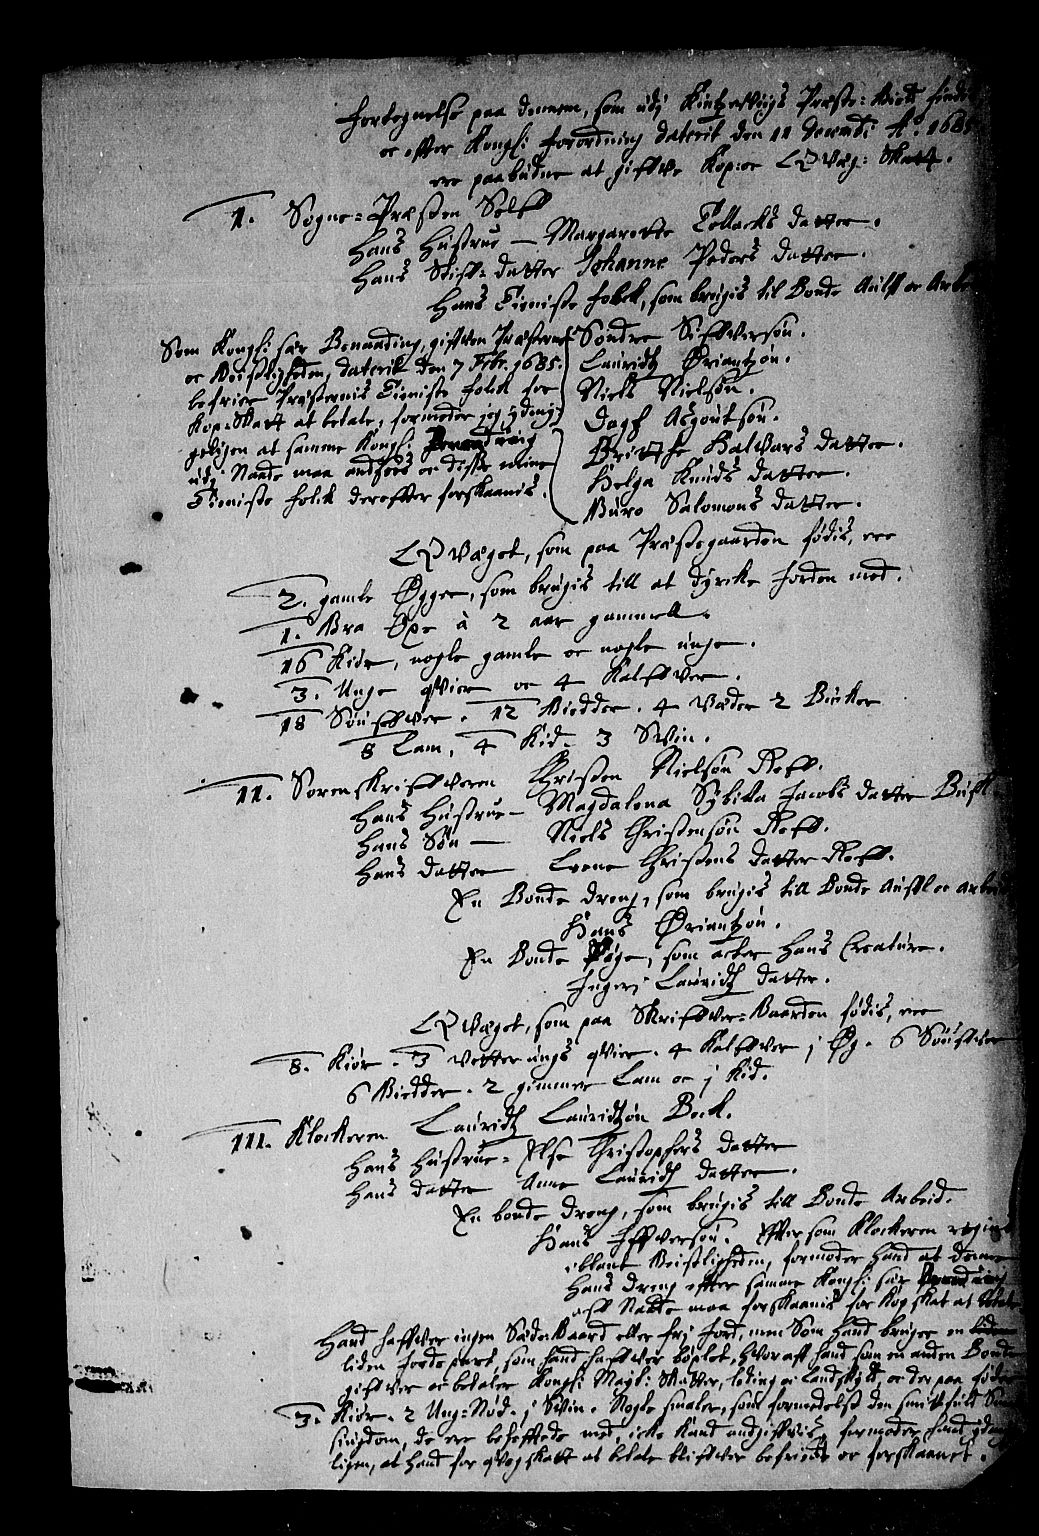 Fortegnelse paa dennem, som udj Kintzervigs Præste-Gield findes
oc effter Kongl: Forordning daterit den 11 Aº 1685
ere paabudne at giffve Kop: oc QVæg: Skatt.
1. Sogne-Præsten Self
Hans Hustrue — Margarette Tollachs datter.
Hans Stif-datter Johanne Peders datter.
Hans Tieniste folck, som brugis til Bonde Aufl oc Arbeid
Som Kongl: sær Benaading, giffven Præsterne
oc Geistligheden, daterit den 7 Febr. 1685.
befrier Præsternis Tieniste folck for
Kop-Skatt at betale, formoder jeg ydmyg-
geligen at samme Kongl. Benaading
udj Naade maa andsees oc disse mine
Tieniste folck dereffter forskaanis.
Sondre Siffversøn.
Lauridtz Øriantzøn.
Niels Nielsøn.
Dagf Asgoutsøn.
Britthe Halvars datter.
Helga Knuds datter.
Guro Salomons datter.
QVæget, som paa Præstegaarden födis, ere
2. gamle Øgger, som brugis till at dyrcke Jorden med.
1. Gra Öxe à 2 aar gammell.
16 Kiör, nogle gamle oc nogle unge.
3. Unge qVier oc 4 Kalffver.
18 Souffver. 12 Giedder. 4 Væder 2 Bucker
8 Lam, 4 Kid. 3 Svin.
11. Sorenskriffveren Christen Nielsøn Roff.
Hans Hustrue — Magdalena Sybilla Jacobs datter
Hans Søn — Niels Christensøn Roff.
Hans datter Lvene Christens datter Roff.
En Bonde dreng, som brugis till Bonde Auffl oc Arbeid
Hans Øriantzøn.
En Bonde Pige, som acter Hans Creature.
Ingerj Lauridtz datter.
QVæget, som paa Skriffver-Gaarden födis, ere
8. Kiör. 3 vetter ungs qVier. 4 Kalffver j Øg. 6 Souffver
6 Giedder. 2 gimmer Lam oc j Kid.
111. Klockeren Lauridtz Lauridtzøn Beck.
Hans Hustrue- Else Christophers datter
Hans datter Anne Lauridtz datter.
En bonde dreng, som brugis till Bonde Arbeid.
Hans Iffversøn. Effter som Klockeren regnis
iblant Geistligheden, formoder hand at denne
Hans dreng effter samme Kongl: sær Benaading
aff Naade maa forskaanis for Kopskat at betale
Hand haffver ingen Sæde-Gaard eller frj Jord, men Som hand bruger en
liden Jordepart, som hand haffver böxlet, hvoraff hand som en anden Bonde
giffver oc betaler Kongl: Mayt: Skatter, leding oc Landskyld, oc der paa föder
3. Kiör. 2 Ung-Nød. j Svin. Nogle smaler, som formedelst den smitsom
siugdom, de ere behefftede med, icke kand andgiffvis, formoder hand ydmyg
ligen, at hand for qVægskatt at betale bliffver befriede oc forskaanet.